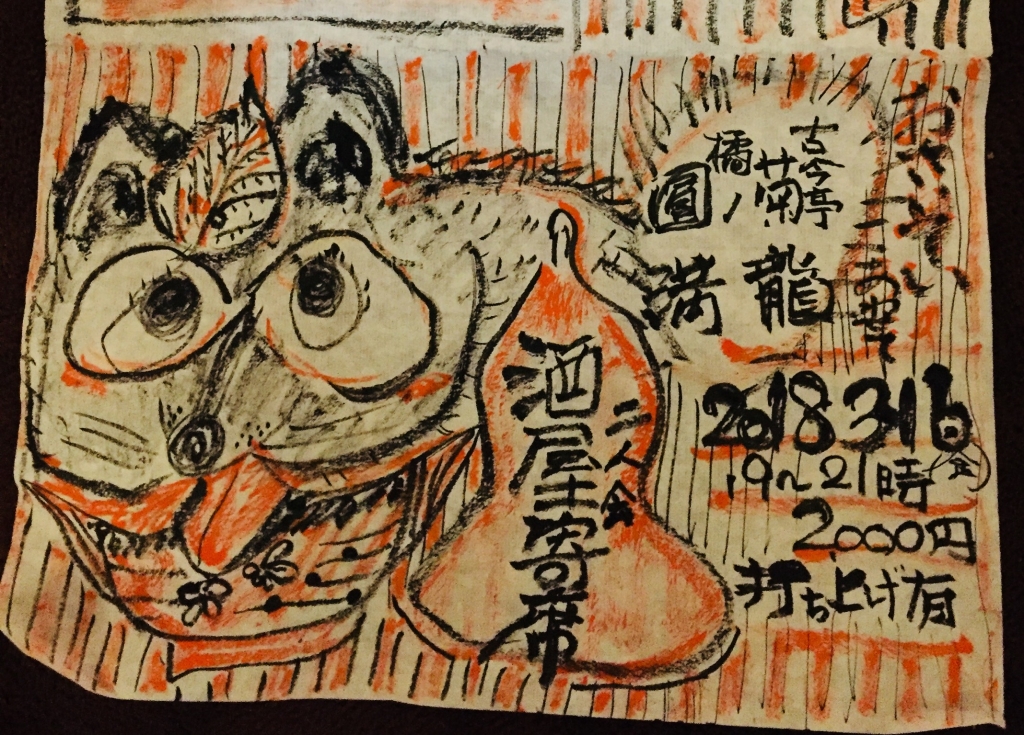 古今亭菊龍
橘ノ圓満
2018 3.16日(金)
19〜21時
2,000円
打ち上げ有
二人会
酒屋寄席